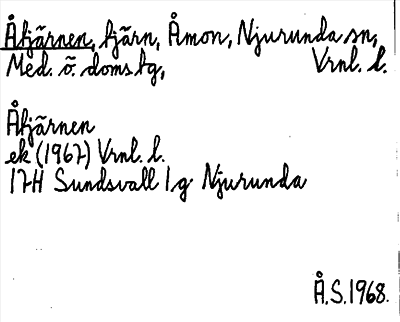 Åtjärnen, tjärn, Åmon, Njurunda sn,
Med. ö. doms.tg, Vrnl. l.
Åtjärnen
ek (1967) Vrnl. l.
17H Sundsvall 1 g Njurunda
Å.S. 1968.